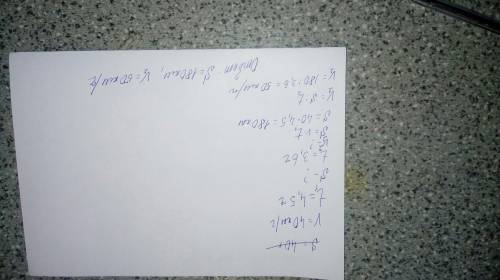 V = 40 км/ч
t₁ = 4,5 ч
S - ?
t₂ = 3,6 ч
V₂ - ?
S = v · t₁
S = 40 · 4,5 = 180 км
V₂ = S · t₂
V₂ = 180 · 3,6 = 50 км/ч
Ответ: S = 180 км, V₂ = 50 км/ч